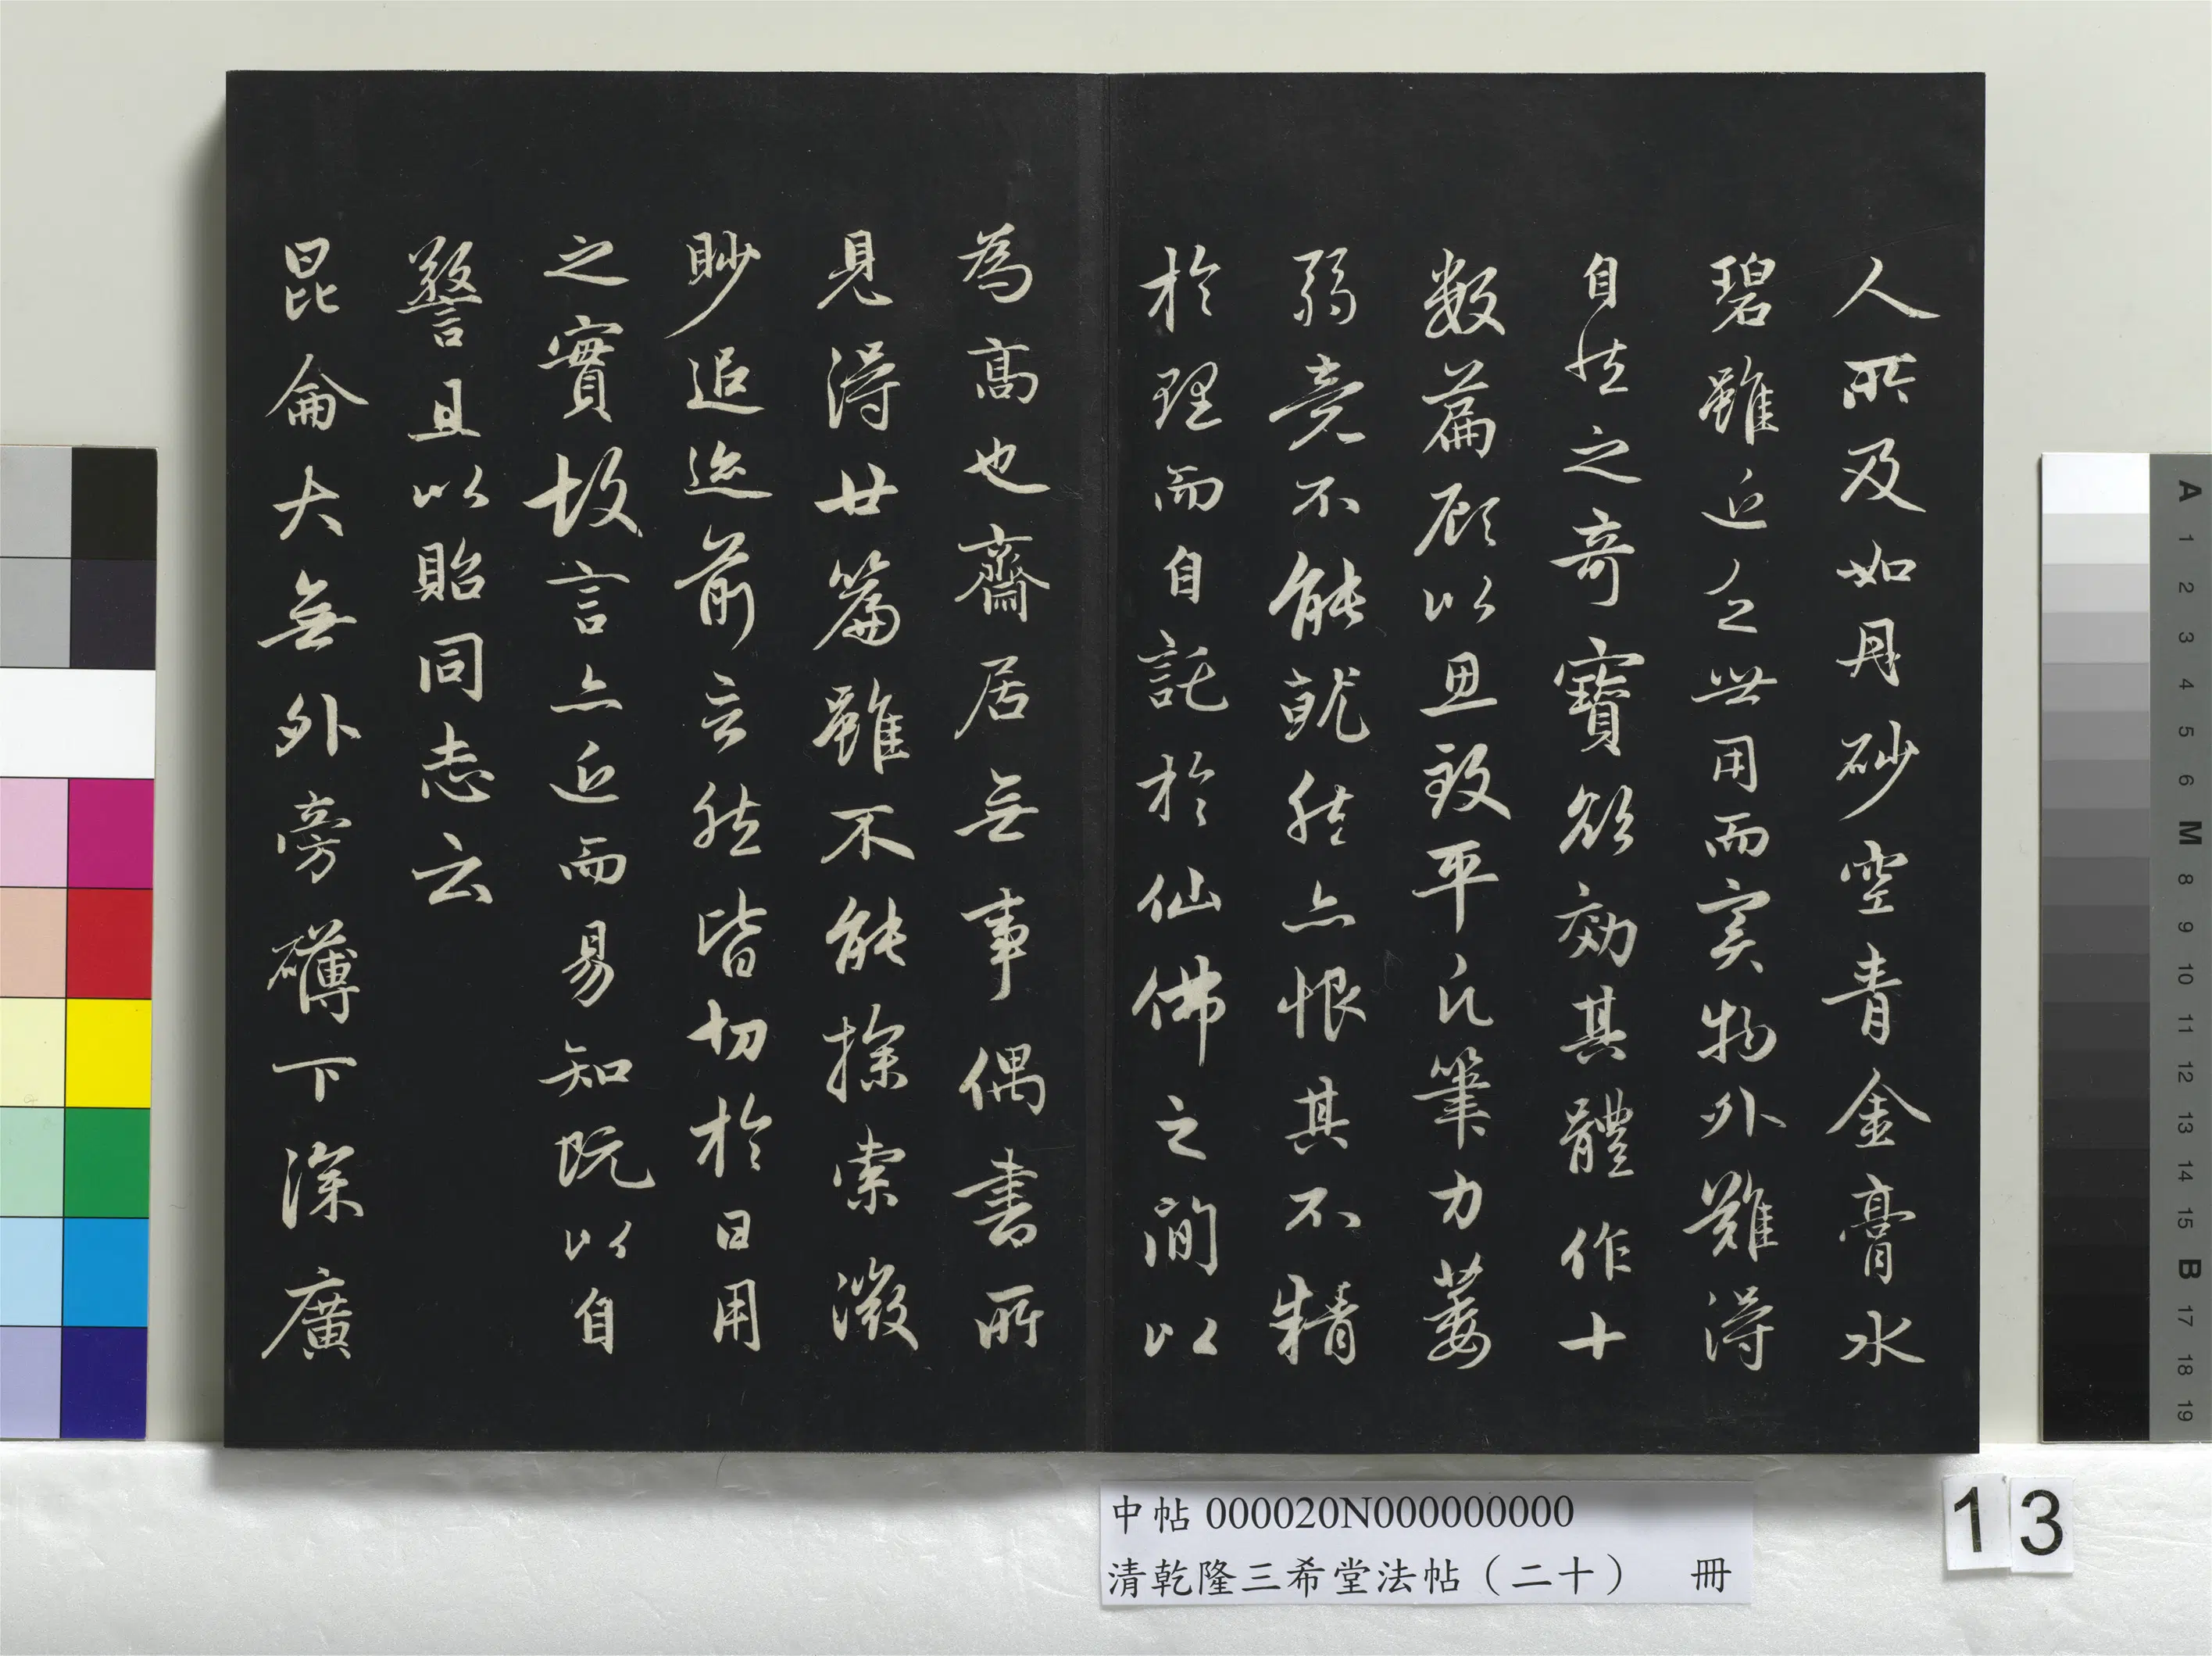 人所及如丹砂空青金膏水
碧雖近乏世用而實物外難得
自然之奇寶欲效其體作十
數篇顧以思致平凡筆力萎
弱竟不能就然亦恨其不精
於理而自託於仙佛之間以
為高也齋居無事偶書所
見得廿篇雖不能探索微
眇追迹前言然皆切於日用
之實故言亦近而易知既以自
警且以貽同志云
昆侖大無外旁礴下深廣
中帖 000020N000000000
清乾隆三希堂法帖（二十） 冊
13
A 1 2 3 4 5 6 M 8 9 10 11 12 13 14 15 B 17 18 19